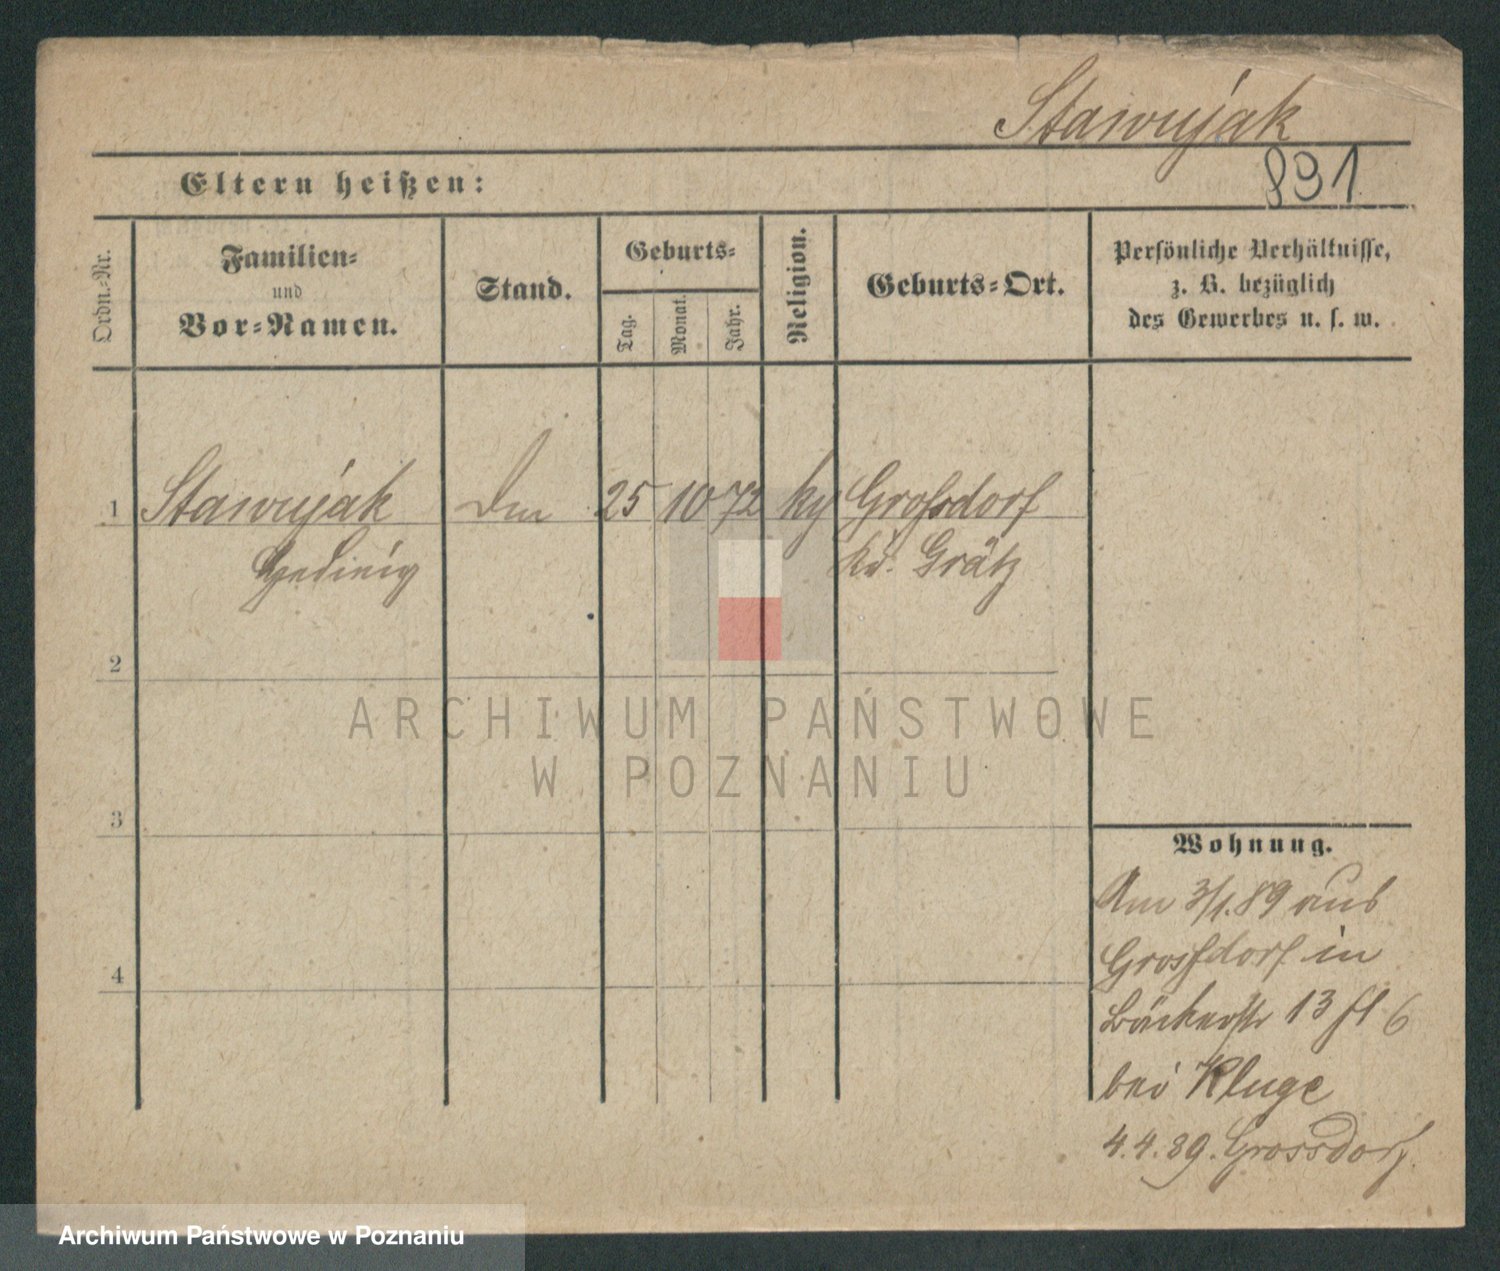 Stawujak
831
Eltern heißen:
Ordn.-Nr.
Familien-
und
Vor-Namen.
Stand.
Geburts-
Tag.
Monat.
Jahr.
Religion.
Geburts-Ort.
Persönliche Verhältnisse,
z. B. bezüglich
des Gewerbes u. s. w.
1
Stawujak
25 10 72
Grossdorf
Hedwig
Kr. Grätz
2
3
4
Wohnung.
Am 3/1.89 aus
Grossdorf in
Bäckerstr 13
bei Kluge
4.4.89. Grossdorf
ARCHIWUM PAŃSTWOWE
W POZNANIU
Archiwum Państwowe w Poznaniu